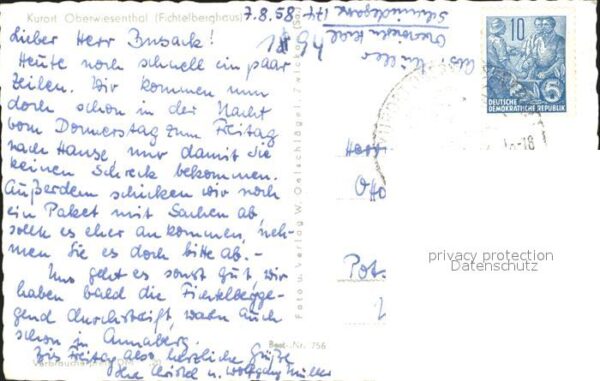 Kurort Oberwiesenthal (Fichtelberghaus)
7.8.58
Lieber Herr Busack!
Heute noch schnell ein paar
Zeilen. Wir kommen nun
doch schon in der Nacht
vom Donnerstag zum Freitag
nach Hause, nur damit Sie
keinen Schreck bekommen.
Außerdem schicken wir noch
ein Paket mit Sachen ab,
sollte es eher ankommen, neh-
men Sie es doch bitte ab. -
Uns geht es sonst gut, wir
haben bald die Fichtelbergge-
gend durchstreift, waren auch
schon in Annaberg.
Bis Freitag also herzliche Grüße
Ihre Christel u. Wolfgang Müller
Abs. Müller
Oberwiesenthal
Foto u. Verlag W. Oelschlägel, Zwickau (Sa)
Best.-Nr. 756
Verbraucherpreis DM
10
DEUTSCHE
DEMOKRATISCHE REPUBLIK
Herrn
Otto
Pot.
privacy protection
Datenschutz